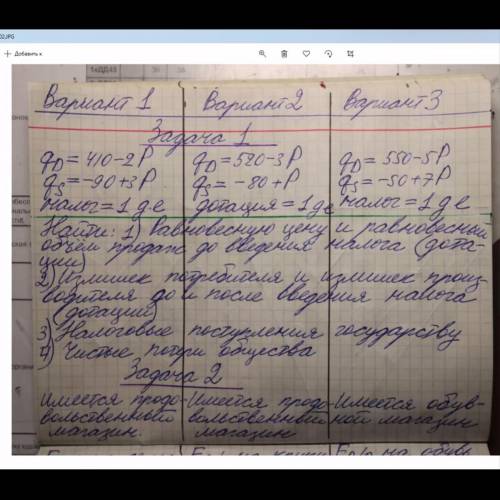 02.JPG
Добавить к
Вариант 1 Вариант 2 Вариант 3
Задача 1
qD = 410-2P qD = 520-3P qD = 550-5P
qs = -90+3P qs = -80+P qs = -50+7P
налог = 1 де дотация = 1 де налог = 1 де
Найти: 1) Равновесную цену и равновесный
объём продаж до введения налога (дота-
ции)
2) Излишек потребителя и излишек произ-
водителя до и после введения налога
(дотации)
3) Налоговые поступления государству
4) Чистые потери общества
Задача 2
Имеется продо- Имеется продо- Имеется обув-
вольственный вольственный ной магазин
магазин. магазин